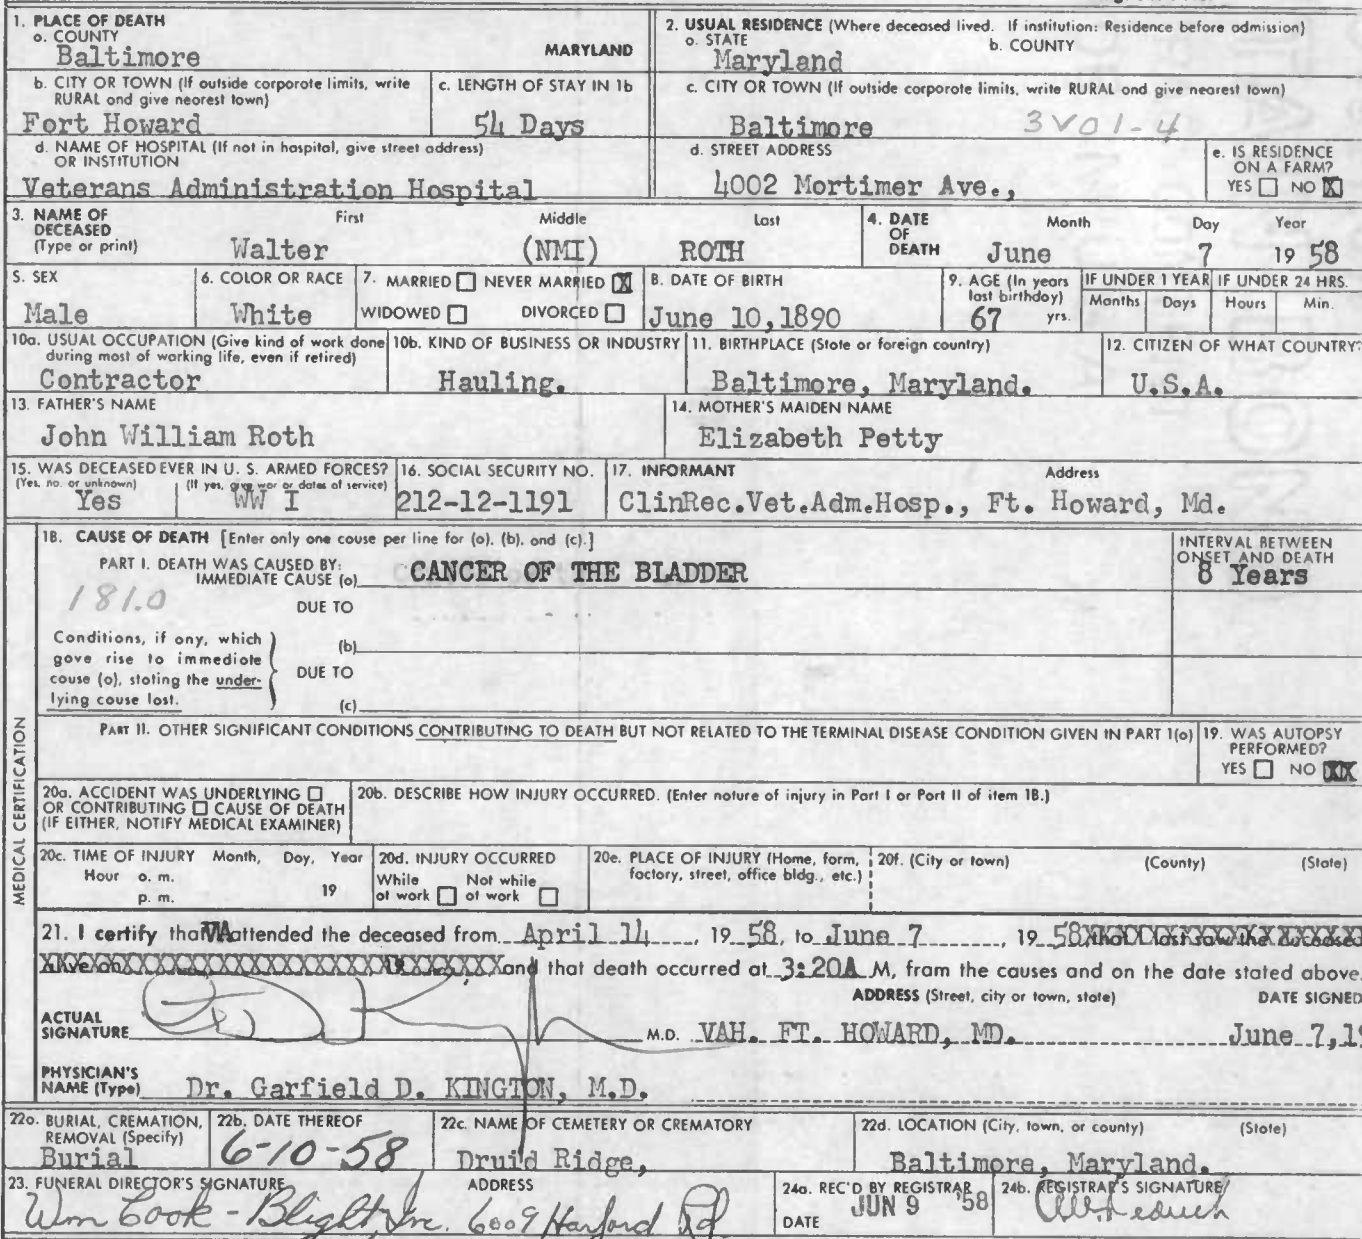 1. PLACE OF DEATH
a. COUNTY
Baltimore MARYLAND
2. USUAL RESIDENCE (Where deceased lived. If institution: Residence before admission)
a. STATE b. COUNTY
Maryland
b. CITY OR TOWN (If outside corporate limits, write RURAL and give nearest town)
Fort Howard
c. LENGTH OF STAY IN 1b
54 Days
c. CITY OR TOWN (If outside corporate limits, write RURAL and give nearest town)
Baltimore 3V01-4
d. NAME OF HOSPITAL (If not in hospital, give street address)
OR INSTITUTION
Veterans Administration Hospital
d. STREET ADDRESS
4002 Mortimer Ave.,
e. IS RESIDENCE
ON A FARM?
YES NO X
3. NAME OF
DECEASED
(Type or print)
First Middle Last
Walter (NMI) ROTH
4. DATE
OF
DEATH
Month Day Year
June 7 19 58
5. SEX
Male
6. COLOR OR RACE
White
7. MARRIED NEVER MARRIED X
WIDOWED DIVORCED
8. DATE OF BIRTH
June 10,1890
9. AGE (In years
last birthday)
67 yrs.
IF UNDER 1 YEAR
Months Days
IF UNDER 24 HRS.
Hours Min.
10a. USUAL OCCUPATION (Give kind of work done
during most of working life, even if retired)
Contractor
10b. KIND OF BUSINESS OR INDUSTRY
Hauling.
11. BIRTHPLACE (State or foreign country)
Baltimore, Maryland.
12. CITIZEN OF WHAT COUNTRY?
U.S.A.
13. FATHER'S NAME
John William Roth
14. MOTHER'S MAIDEN NAME
Elizabeth Petty
15. WAS DECEASED EVER IN U. S. ARMED FORCES?
(Yes, no. or unknown) (If yes, give war or dates of service)
Yes WW I
16. SOCIAL SECURITY NO.
212-12-1191
17. INFORMANT Address
ClinRec.Vet.Adm.Hosp., Ft. Howard, Md.
MEDICAL CERTIFICATION
18. CAUSE OF DEATH [Enter only one cause per line for (a), (b), and (c).]
PART I. DEATH WAS CAUSED BY:
IMMEDIATE CAUSE (a) CANCER OF THE BLADDER
INTERVAL BETWEEN
ONSET AND DEATH
8 Years
181.0
DUE TO
Conditions, if any, which
gave rise to immediate
cause (a), stating the under-
lying cause last.
(b)
DUE TO
(c)
PART II. OTHER SIGNIFICANT CONDITIONS CONTRIBUTING TO DEATH BUT NOT RELATED TO THE TERMINAL DISEASE CONDITION GIVEN IN PART I(a)
19. WAS AUTOPSY
PERFORMED?
YES NO XX
20a. ACCIDENT WAS UNDERLYING
OR CONTRIBUTING CAUSE OF DEATH
(IF EITHER, NOTIFY MEDICAL EXAMINER)
20b. DESCRIBE HOW INJURY OCCURRED. (Enter nature of injury in Part I or Part II of item 18.)
20c. TIME OF INJURY Month, Day, Year
Hour a. m.
p. m. 19
20d. INJURY OCCURRED
While at work Not while at work
20e. PLACE OF INJURY (Home, farm,
factory, street, office bldg., etc.)
20f. (City or town) (County) (State)
21. I certify that VA attended the deceased from April 14, 19 58, to June 7, 19 58 that I last saw the deceased
alive on and that death occurred at 3:20A M, from the causes and on the date stated above.
ADDRESS (Street, city or town, state) DATE SIGNED
ACTUAL
SIGNATURE M.D. VAH. FT. HOWARD, MD. June 7,19
PHYSICIAN'S
NAME (Type) Dr. Garfield D. KINGTON, M.D.
22a. BURIAL, CREMATION,
REMOVAL (Specify)
Burial
22b. DATE THEREOF
6-10-58
22c. NAME OF CEMETERY OR CREMATORY
Druid Ridge,
22d. LOCATION (City, town, or county) (State)
Baltimore, Maryland.
23. FUNERAL DIRECTOR'S SIGNATURE ADDRESS
Wm Cook - Blight, Inc. 6009 Harford Rd
24a. REC'D BY REGISTRAR
DATE JUN 9 '58
24b. REGISTRAR'S SIGNATURE